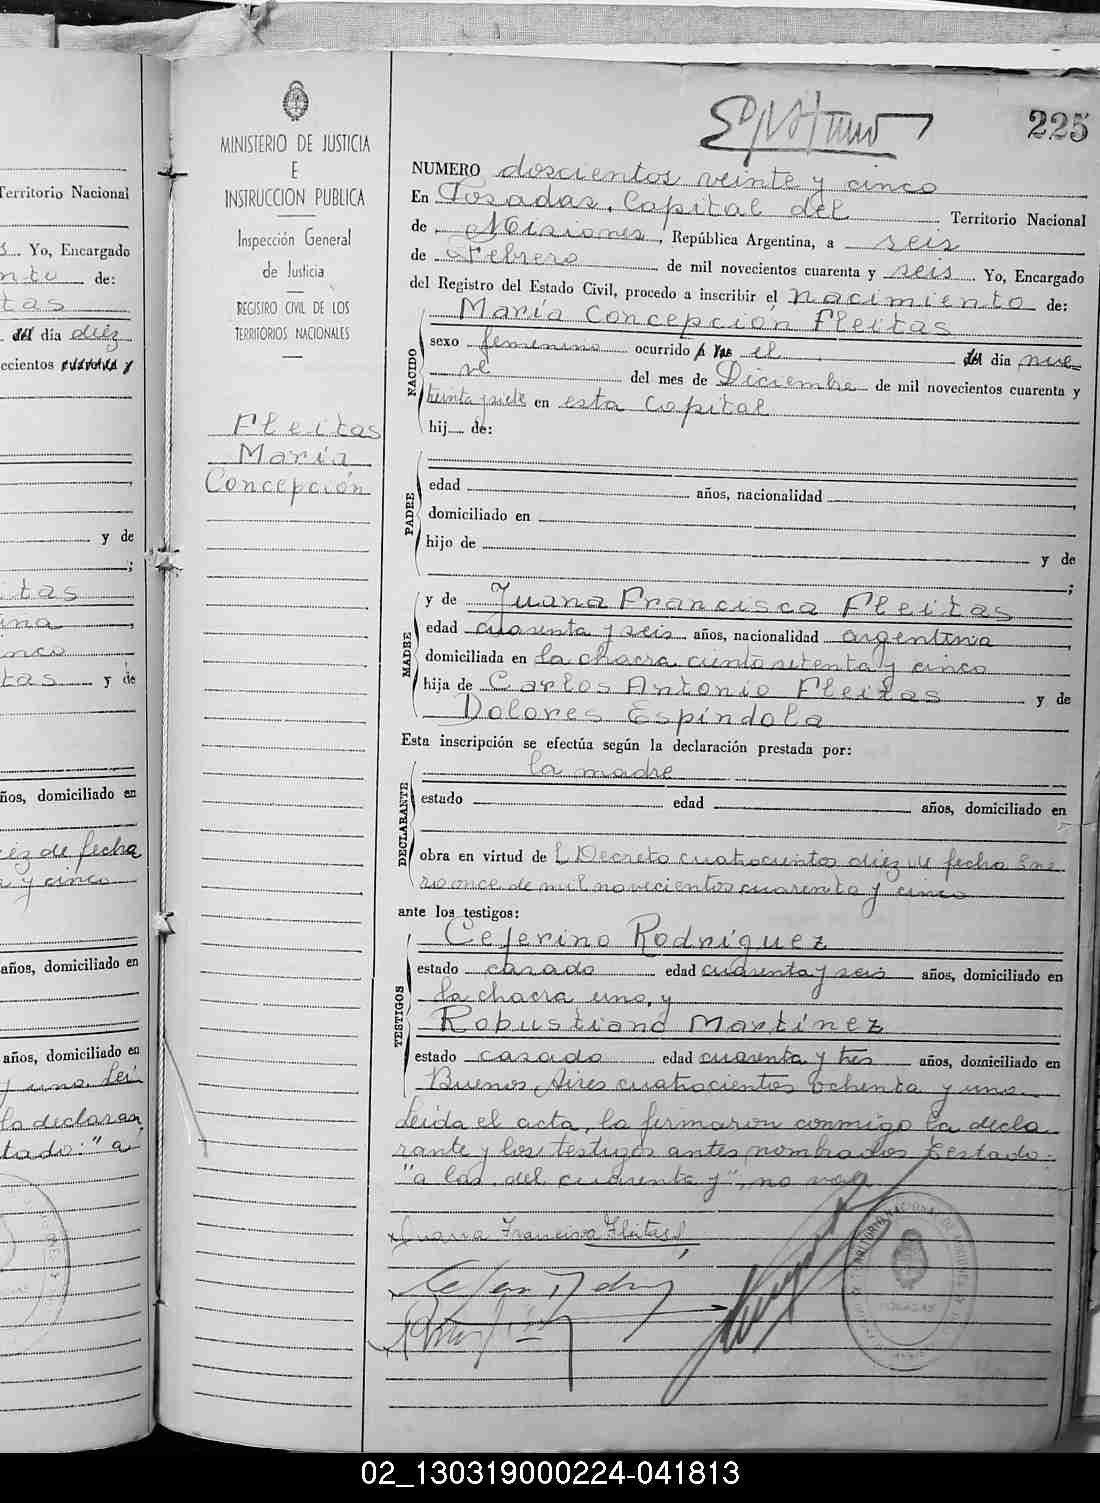 225
MINISTERIO DE JUSTICIA
E
INSTRUCCION PUBLICA
Inspección General
de Justicia
REGISTRO CIVIL DE LOS
TERRITORIOS NACIONALES
Fleitas
María
Concepción
NUMERO doscientos veinte y cinco
En Posadas, Capital del Territorio Nacional
de Misiones, República Argentina, a seis
de Febrero de mil novecientos cuarenta y seis Yo, Encargado
del Registro del Estado Civil, procedo a inscribir el nacimiento de:
María Concepción Fleitas
NACIDO
sexo femenino ocurrido a las el del día nue
ve del mes de Diciembre de mil novecientos cuarenta y
treinta y siete en esta Capital
hij de:
PADRE
edad años, nacionalidad
domiciliado en
hijo de y de
;
MADRE
y de Juana Francisca Fleitas
edad cuarenta y seis años, nacionalidad argentina
domiciliada en la chacra ciento setenta y cinco
hija de Carlos Antonio Fleitas y de
Dolores Espíndola
Esta inscripción se efectúa según la declaración prestada por:
la madre
DECLARANTE
estado edad años, domiciliado en
obra en virtud del Decreto cuatrocientos diez de fecha Ene
ro once de mil novecientos cuarenta y cinco
ante los testigos:
TESTIGOS
Ceferino Rodríguez
estado casado edad cuarenta y seis años, domiciliado en
la chacra uno, y
Robustiano Martínez
estado casado edad cuarenta y tres años, domiciliado en
Buenos Aires cuatrocientos ochenta y uno.
Leida el acta, la firmaron conmigo la decla
rante y los testigos antes nombrados Testado:
"a las del cuarenta y", no vale
Juana Francisca Fleitas
Territorio Nacional
Yo, Encargado
de:
tas
del día diéz
ecientos cuarenta y
y de
;
itas
ina
inco
tas y de
años, domiciliado en
iéz de fecha
a y cinco
años, domiciliado en
años, domiciliado en
y uno. Lei
la declaran
tado: "a
02_130319000224-041813